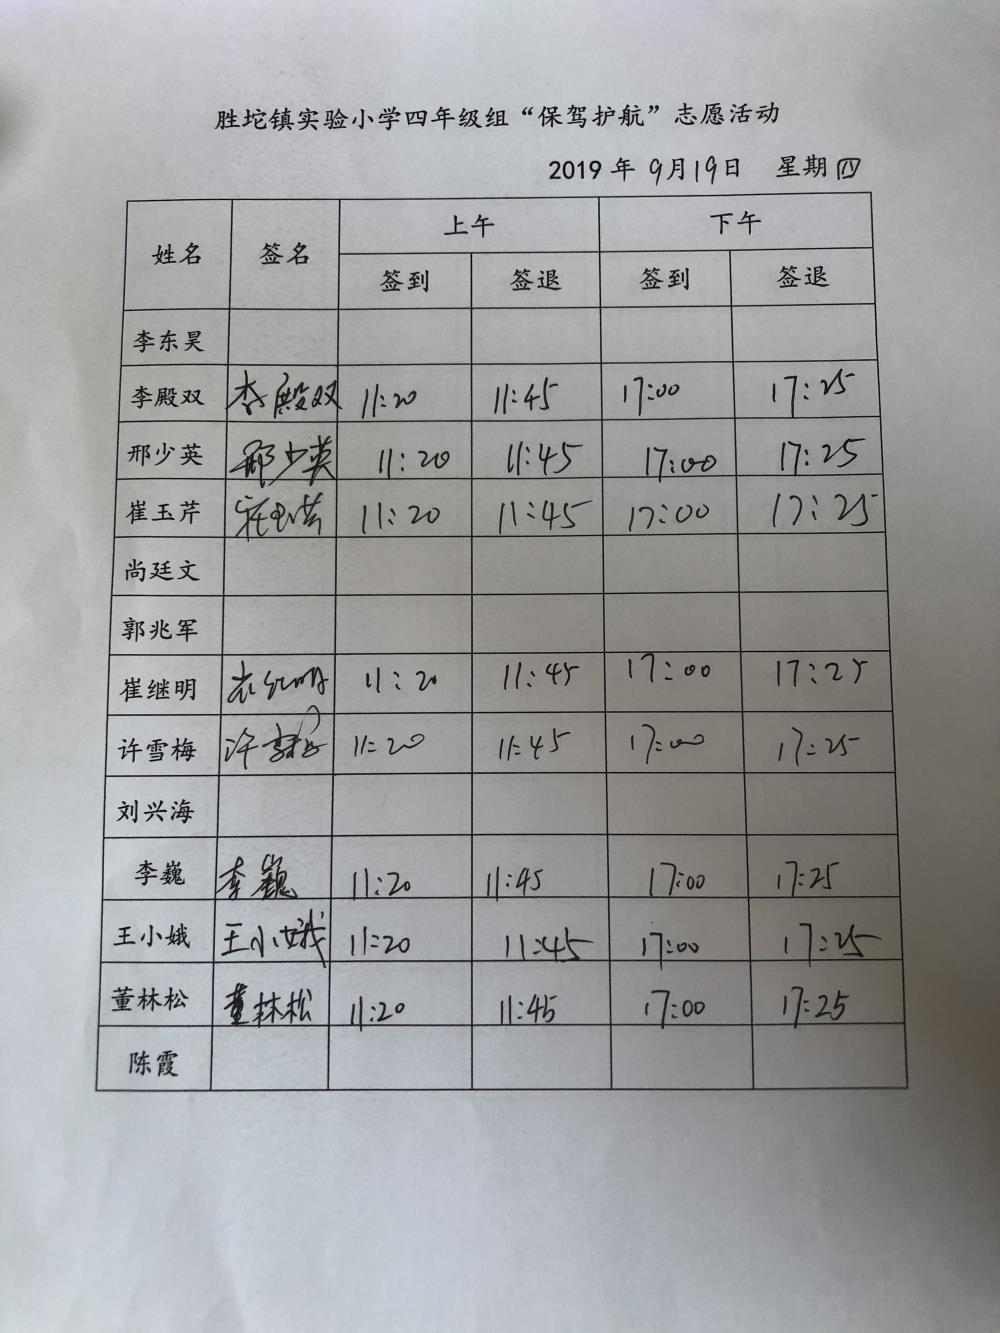 胜坨镇实验小学四年级组“保驾护航”志愿活动
2019 年 9月19日 星期四
姓名 签名 上午 下午
签到 签退 签到 签退
李东昊
李殿双 李殿双 11:20 11:45 17:00 17:25
邢少英 邢少英 11:20 11:45 17:00 17:25
崔玉芹 崔玉芹 11:20 11:45 17:00 17:25
尚廷文
郭兆军
崔继明 崔继明 11:20 11:45 17:00 17:25
许雪梅 许雪梅 11:20 11:45 17:00 17:25
刘兴海
李巍 李巍 11:20 11:45 17:00 17:25
王小娥 王小娥 11:20 11:45 17:00 17:25
董林松 董林松 11:20 11:45 17:00 17:25
陈霞